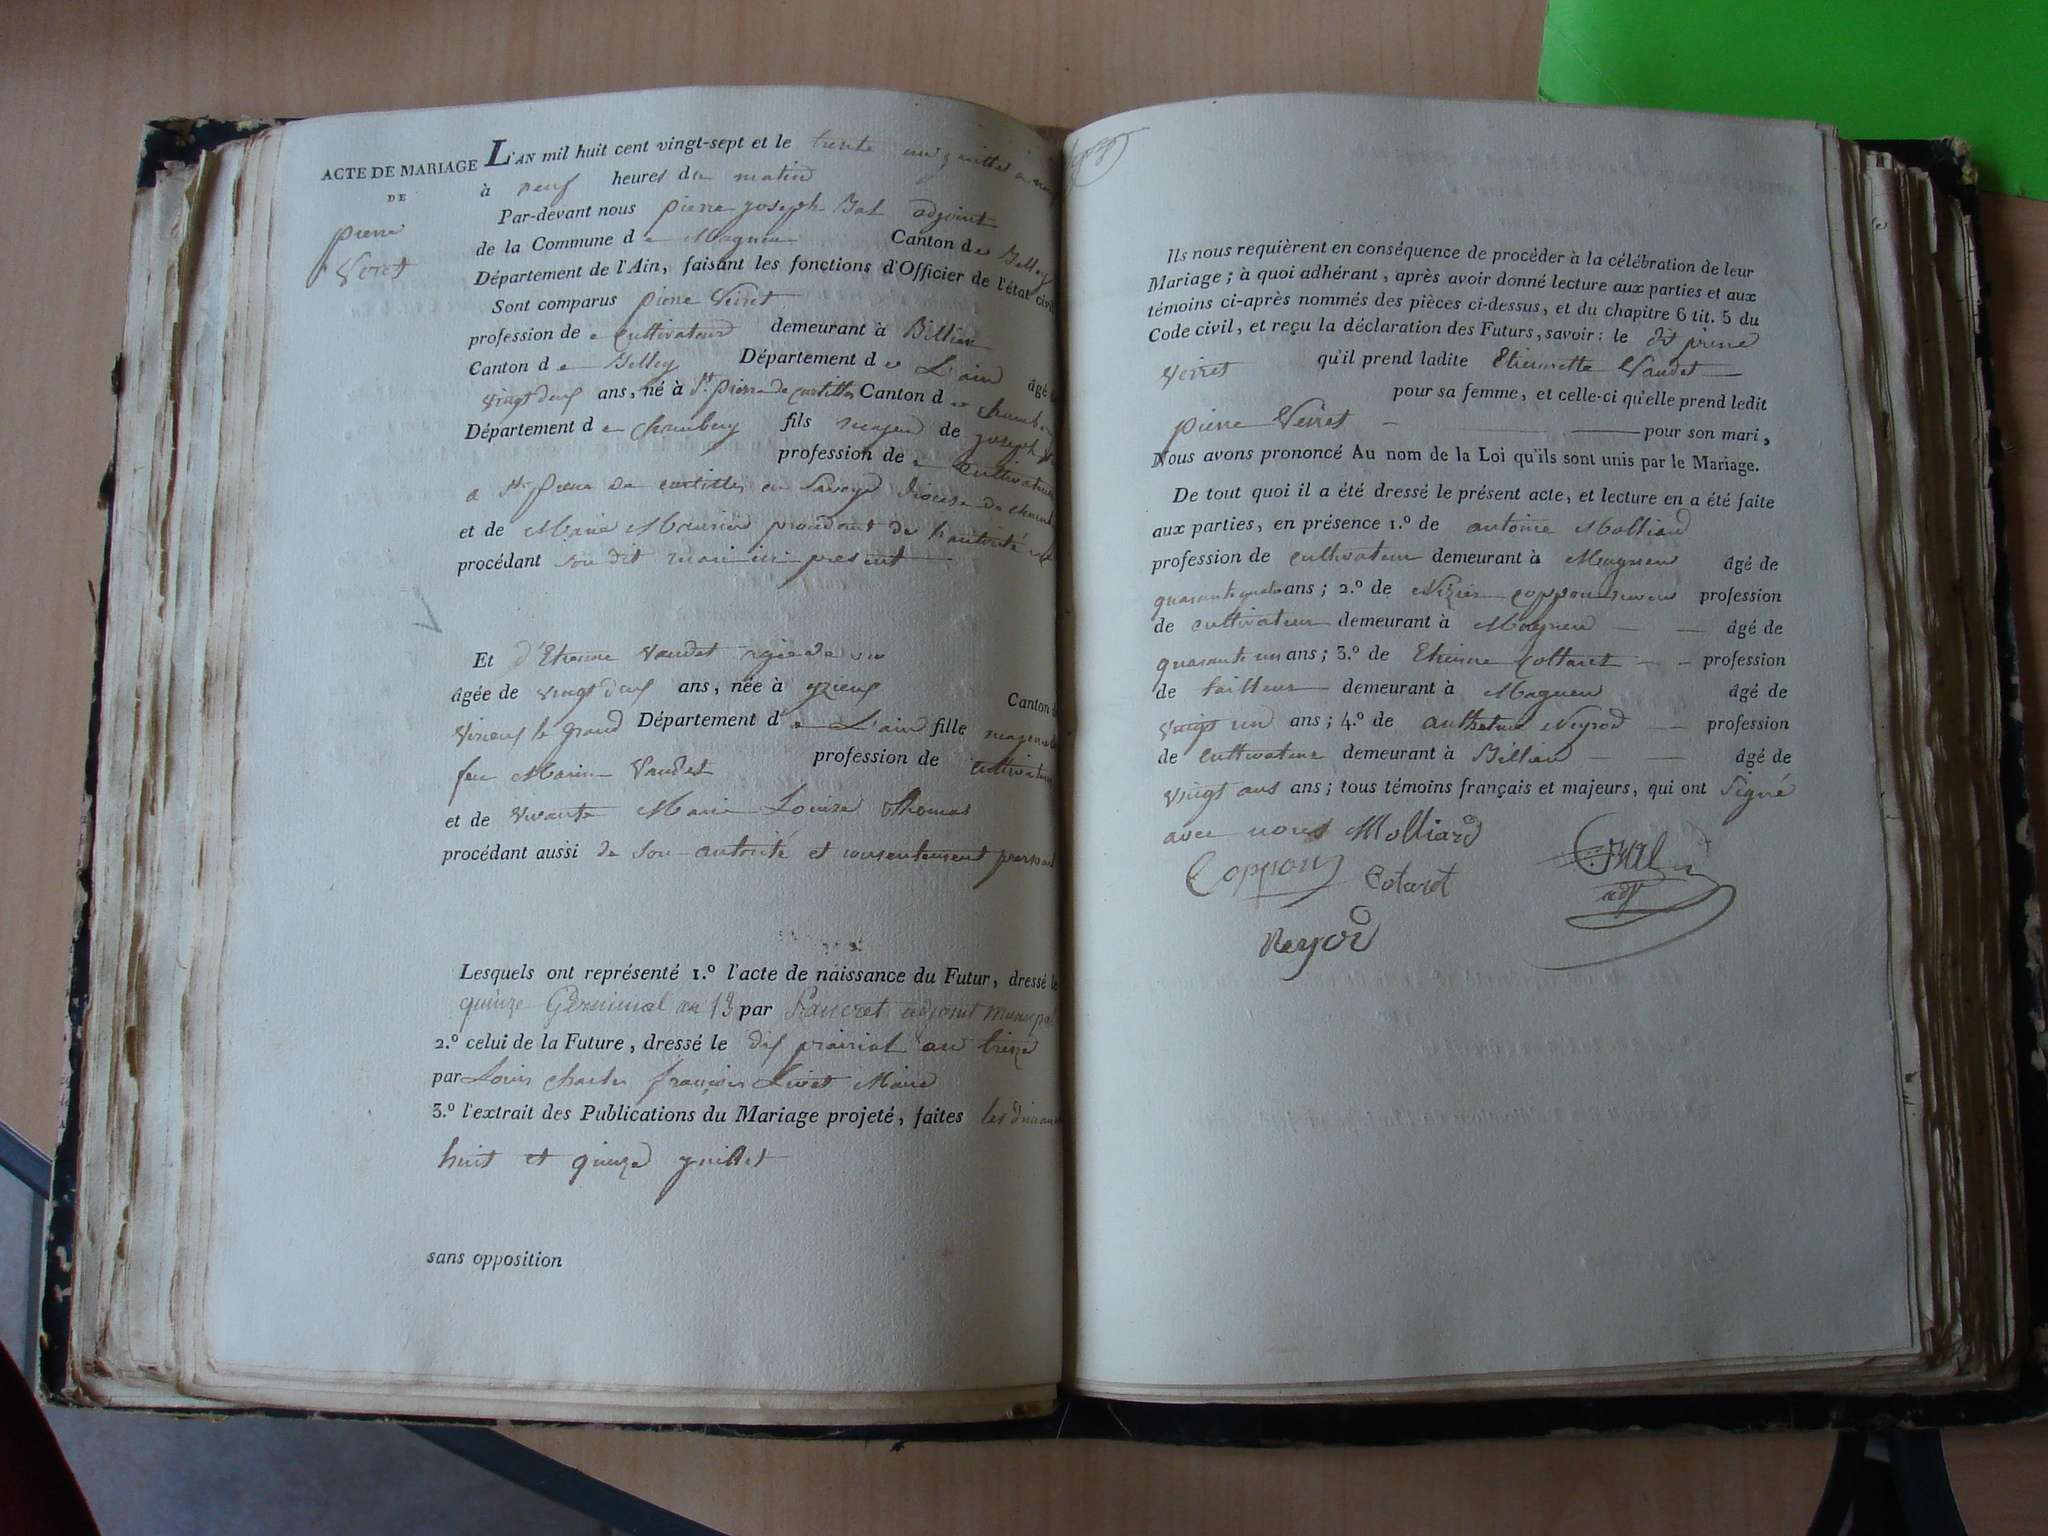 ACTE DE MARIAGE
DE
pierre
Veret
L'AN mil huit cent vingt-sept et le trente un juillet
à neuf heures du matin
Par-devant nous pierre joseph Bal adjoint
de la Commune de Magnieu Canton de Belley
Département de l'Ain, faisant les fonctions d'Officier de l'état civil
Sont comparus pierre Veiret
profession de cultivateur demeurant à Billieu
Canton de Belley Département de L'ain âgé
vingt deux ans, né à St. pierre de curtilles Canton de
Département de chambery fils majeur de joseph
profession de cultivateur
a St. pierre de curtilles en Savoye diocèse de
et de Marie procédant de l'autorité
procédant son dit mari ici présent
Et d'Etienne Vaudet
âgée de vingt deux ans, née à yzieux Canton
Virieux le grand Département de L'ain fille majeure
feu Marin Vaudet profession de cultivateur
et de vivante Marie Louise Thomas
procédant aussi de son autorité et consentement
Lesquels ont représenté 1.º l'acte de naissance du Futur, dressé le
quinze Germinal an 13 par adjoint
2.º celui de la Future, dressé le dix prairial an treize
par Louis Charles françois Livet Maire
3.º l'extrait des Publications du Mariage projeté, faites les
huit et quinze juillet
sans opposition
Ils nous requièrent en conséquence de procéder à la célébration de leur
Mariage ; à quoi adhérant, après avoir donné lecture aux parties et aux
témoins ci-après nommés des pièces ci-dessus, et du chapitre 6 tit. 5 du
Code civil, et reçu la déclaration des Futurs, savoir : le dt pierre
Veiret qu'il prend ladite Etiennette Vaudet
pour sa femme, et celle-ci qu'elle prend ledit
pierre Veiret pour son mari,
Nous avons prononcé Au nom de la Loi qu'ils sont unis par le Mariage.
De tout quoi il a été dressé le présent acte, et lecture en a été faite
aux parties, en présence 1.º de antoine Molliard
profession de cultivateur demeurant à Magnieu âgé de
quarante quatre ans ; 2.º de Nizier coppon profession
de cultivateur demeurant à Magnieu âgé de
quarante un ans ; 3.º de Etienne Cottaret profession
de tailleur demeurant à Magnieu âgé de
vingt un ans ; 4.º de Neyrod profession
de cultivateur demeurant à Billieu âgé de
vingt ans ans ; tous témoins français et majeurs, qui ont signé
avec nous Molliard
Coppon Cotaret Bal
adjt
Neyrod